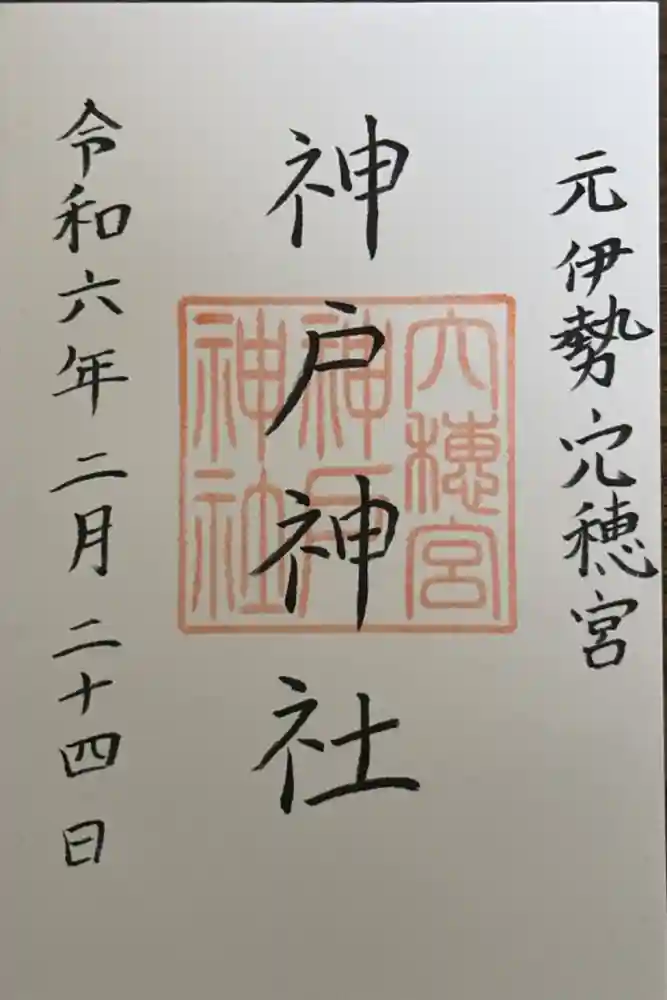 元伊勢穴穂宮
神戸神社
穴穂宮
神戸
神社
令和六年二月二十四日